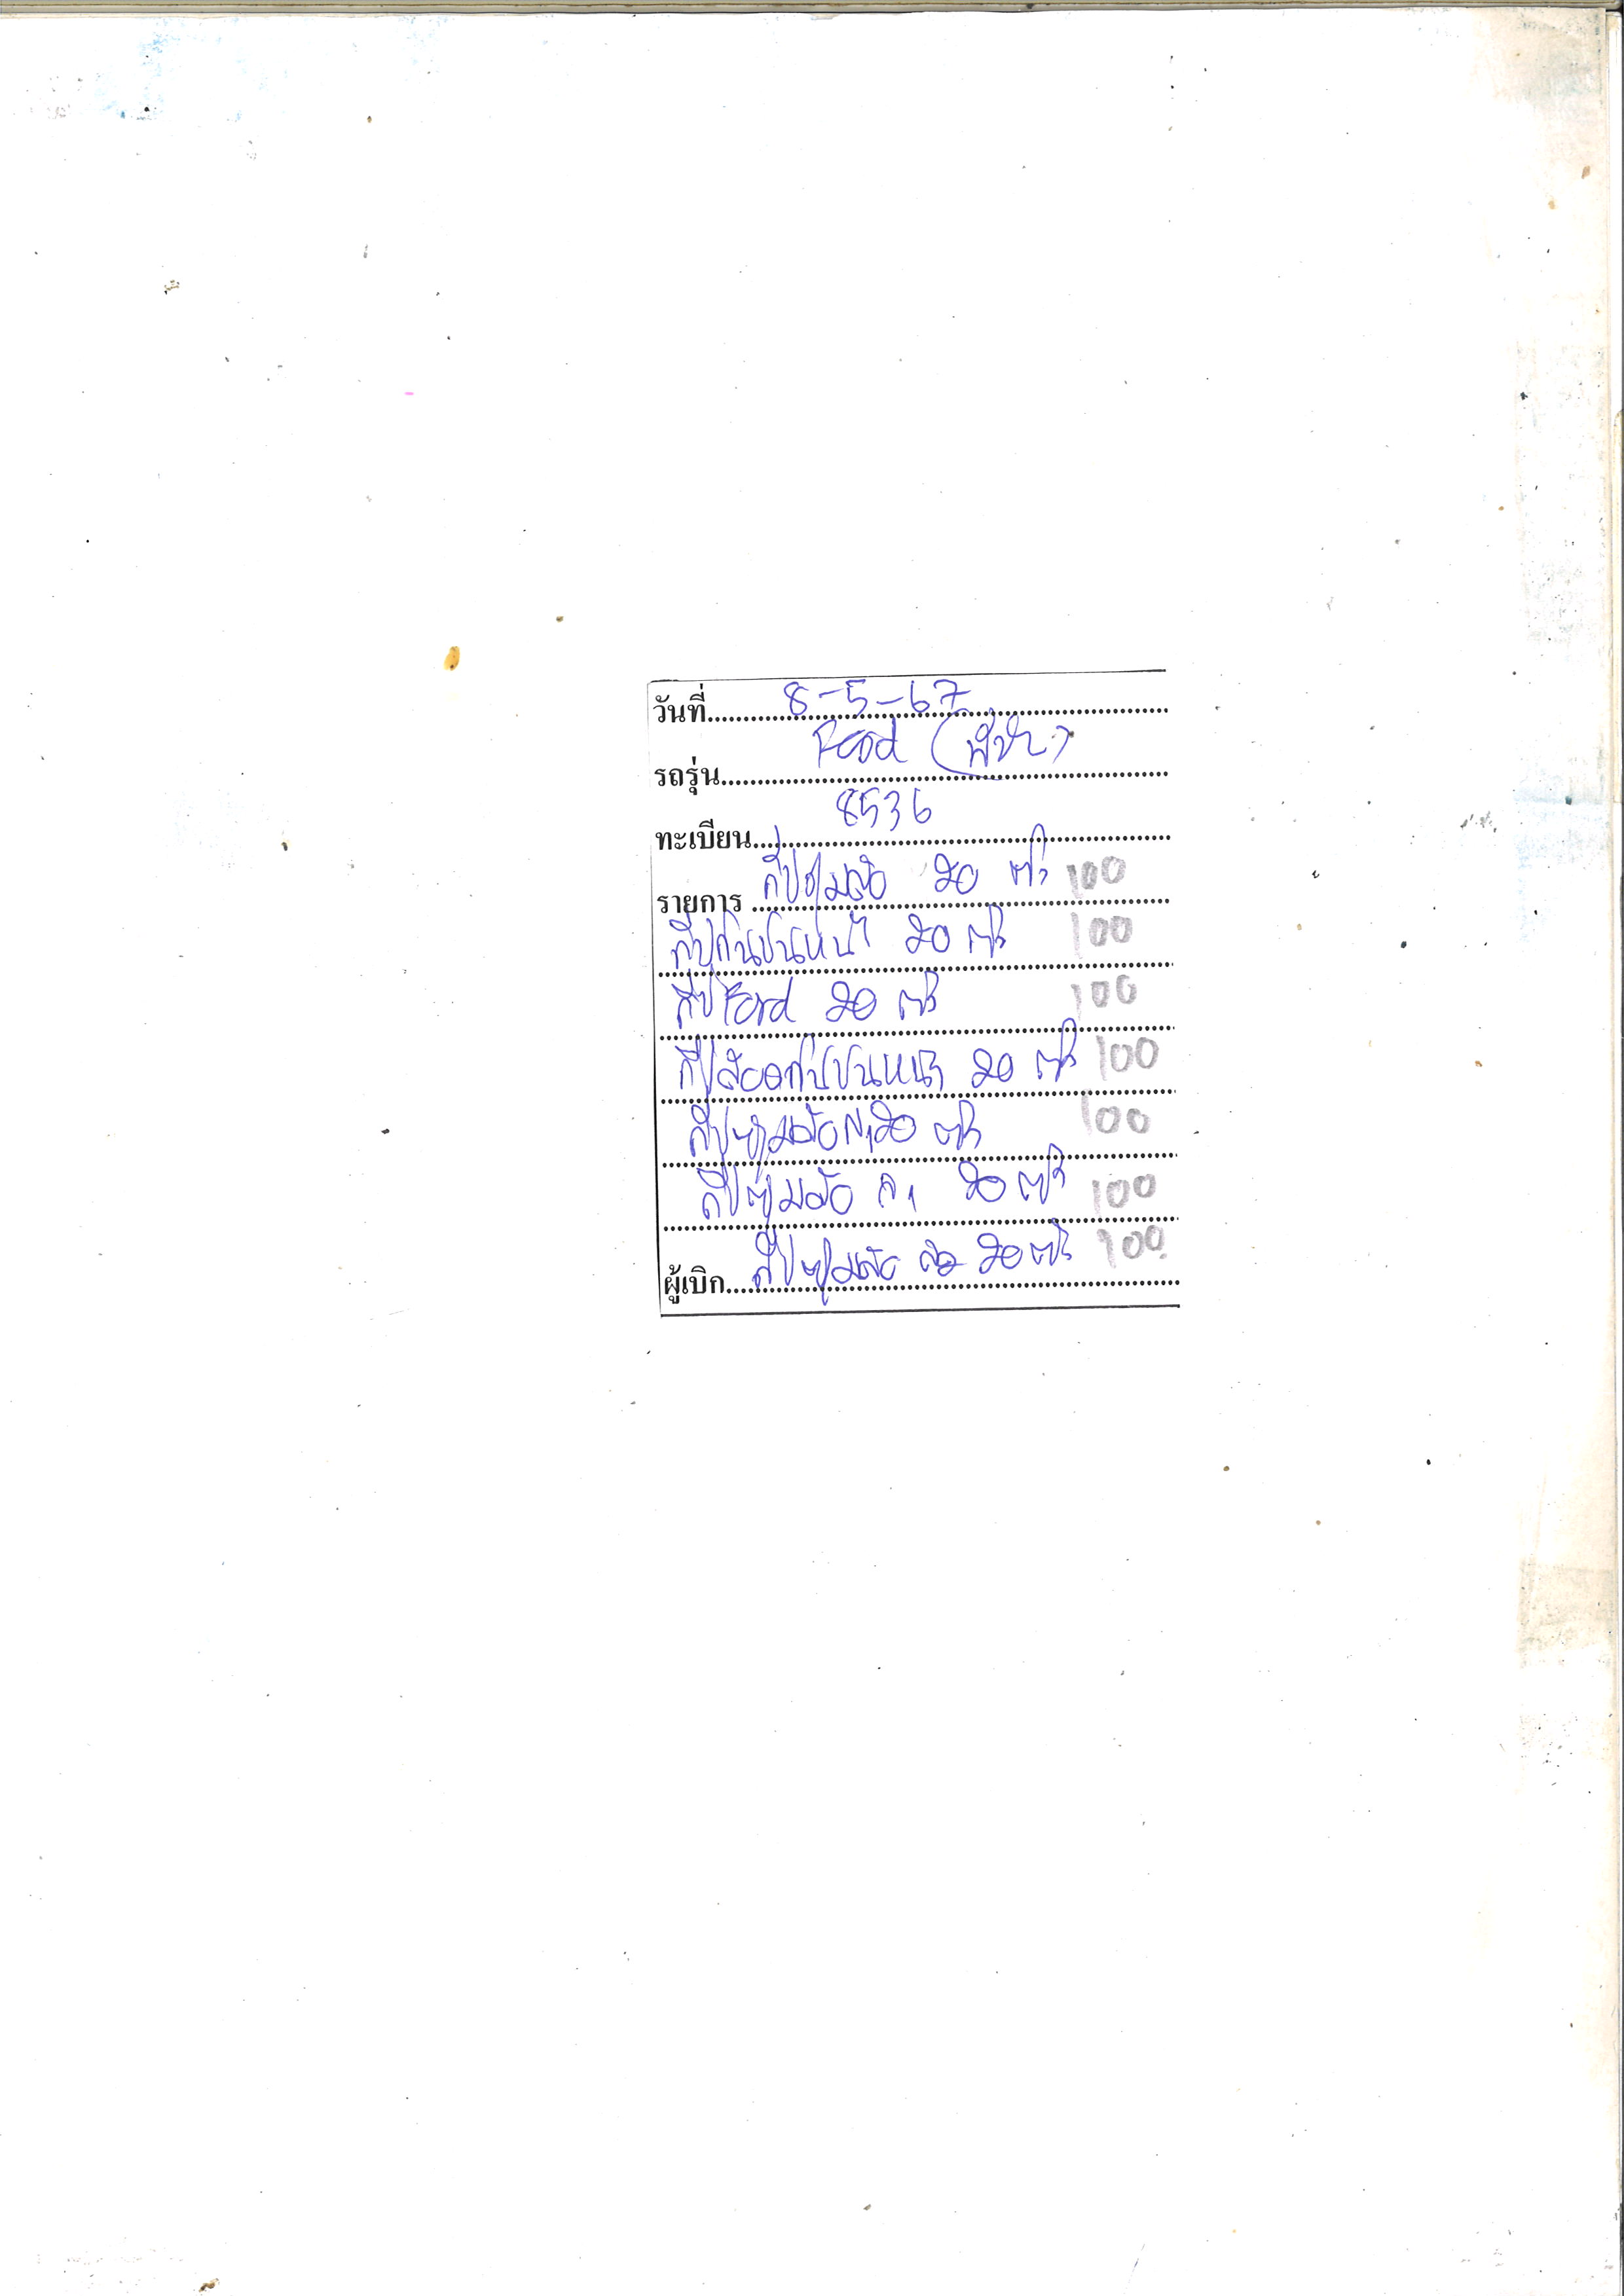 วันที่ 8-5-67
รถรุ่น Ford
ทะเบียน 8536
รายการ กิ๊ปซุ้มล้อ 20 ตัว 100
กิ๊ปกันชนหน้า 20 ตัว 100
กิ๊ป Ford 20 ตัว 100
กิ๊ปล๊อคกันชนหน้า 20 ตัว 100
กิ๊ปซุ้มล้อ 20 ตัว 100
กิ๊ปซุ้มล้อ 20 ตัว 100
ผู้เบิก กิ๊ปซุ้มล้อ 20 ตัว 100